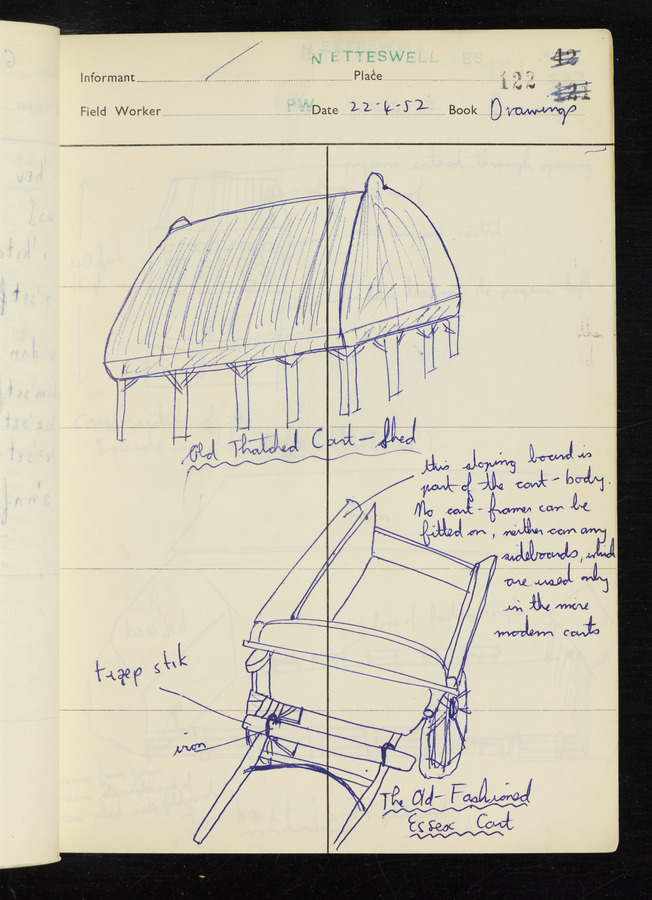 NETTESWELL ES
42
Informant
Place
122
121
Field Worker
PW
Date 22-4-52
Book Drawings
Old Thatched Cart-Shed
this sloping board is
part of the cart-body.
No cart-frames can be
fitted on, neither can any
sideboards, which
are used only
in the more
modern carts
stik
iron
The Old-Fashioned
Essex Cart